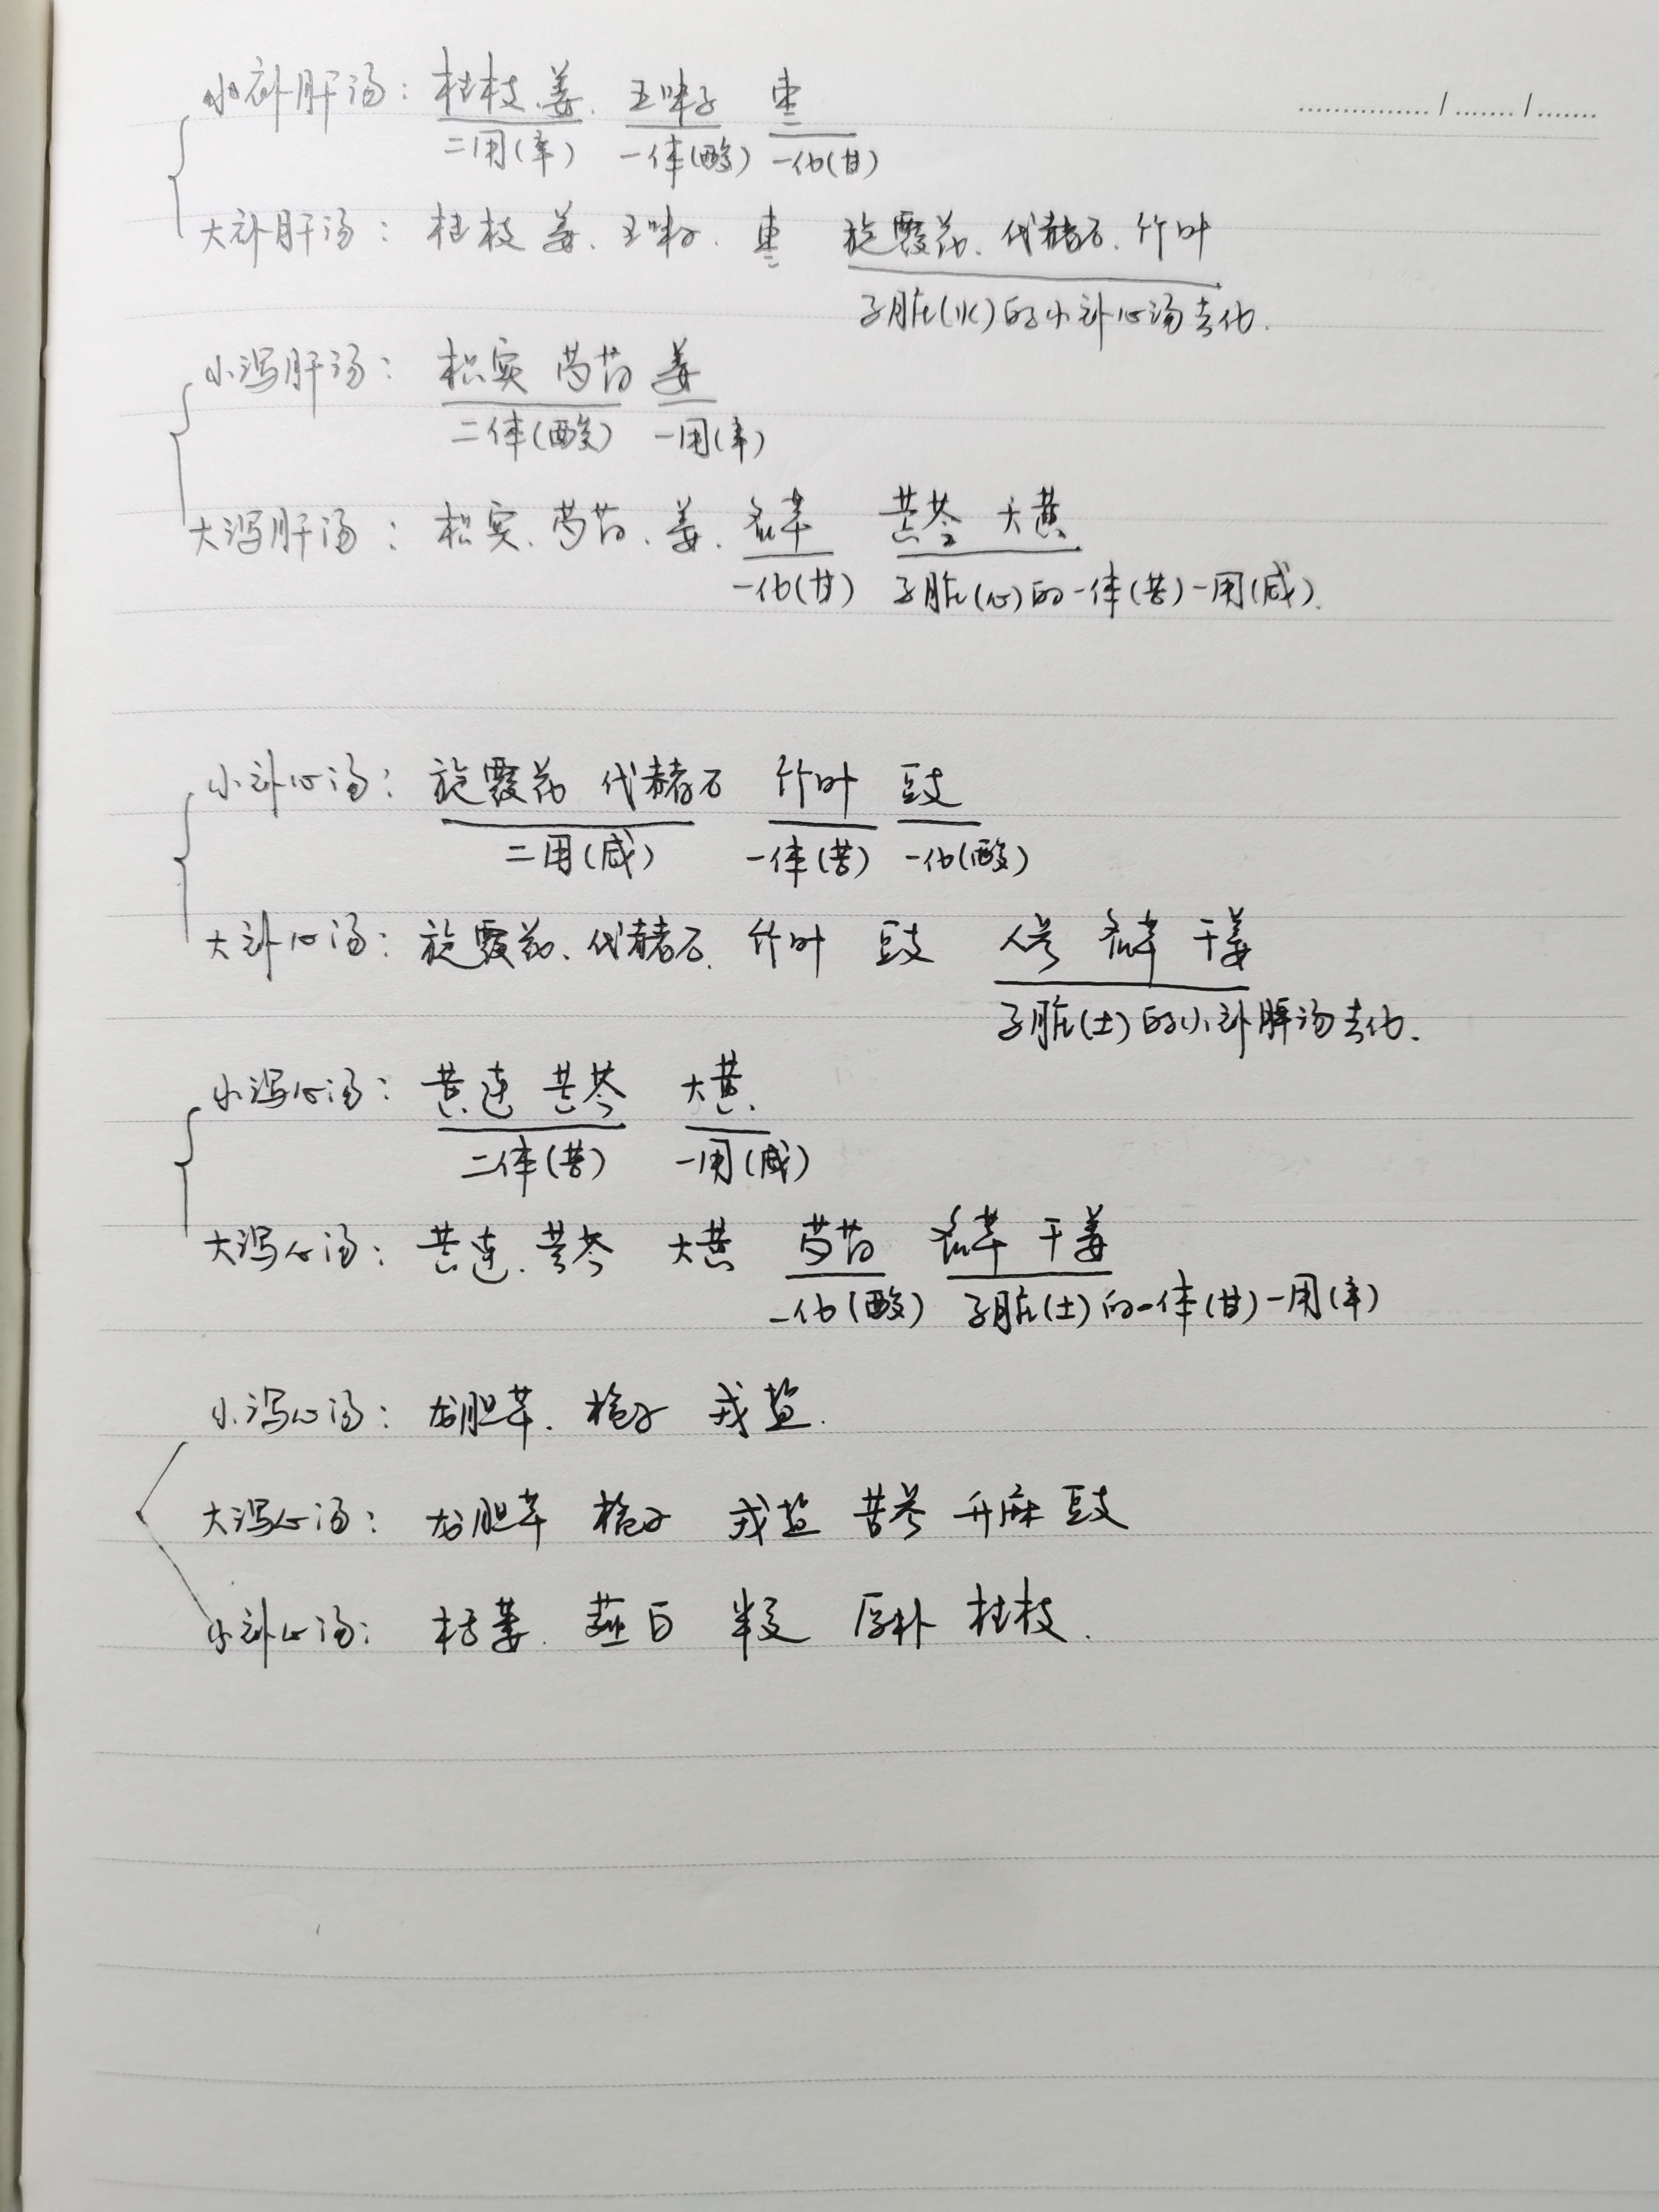 小补肝汤：桂枝、姜、五味子 枣
二用(辛) 一体(酸) 一化(甘)
大补肝汤：桂枝 姜、五味子、枣 旋覆花、代赭石、竹叶
子脏(火)的小补心汤去化.
小泻肝汤：枳实 芍药 姜
二体(酸) 一用(辛)
大泻肝汤：枳实、芍药、姜、甘草 黄芩 大黄
一化(甘) 子脏(心)的一体(苦)一用(咸).
小补心汤：旋覆花 代赭石 竹叶 豉
二用(咸) 一体(苦) 一化(酸)
大补心汤：旋覆花、代赭石、竹叶 豉 人参 甘草 干姜
子脏(土)的小补脾汤去化.
小泻心汤：黄连 黄芩 大黄
二体(苦) 一用(咸)
大泻心汤：黄连、黄芩 大黄 芍药 甘草 干姜
一化(酸) 子脏(土)的一体(甘)一用(辛)
小泻心汤：龙胆草、栀子 戎盐.
大泻心汤：龙胆草 栀子 戎盐 苦参 升麻 豉
小补心汤：栝蒌、薤白 半夏 厚朴 桂枝.